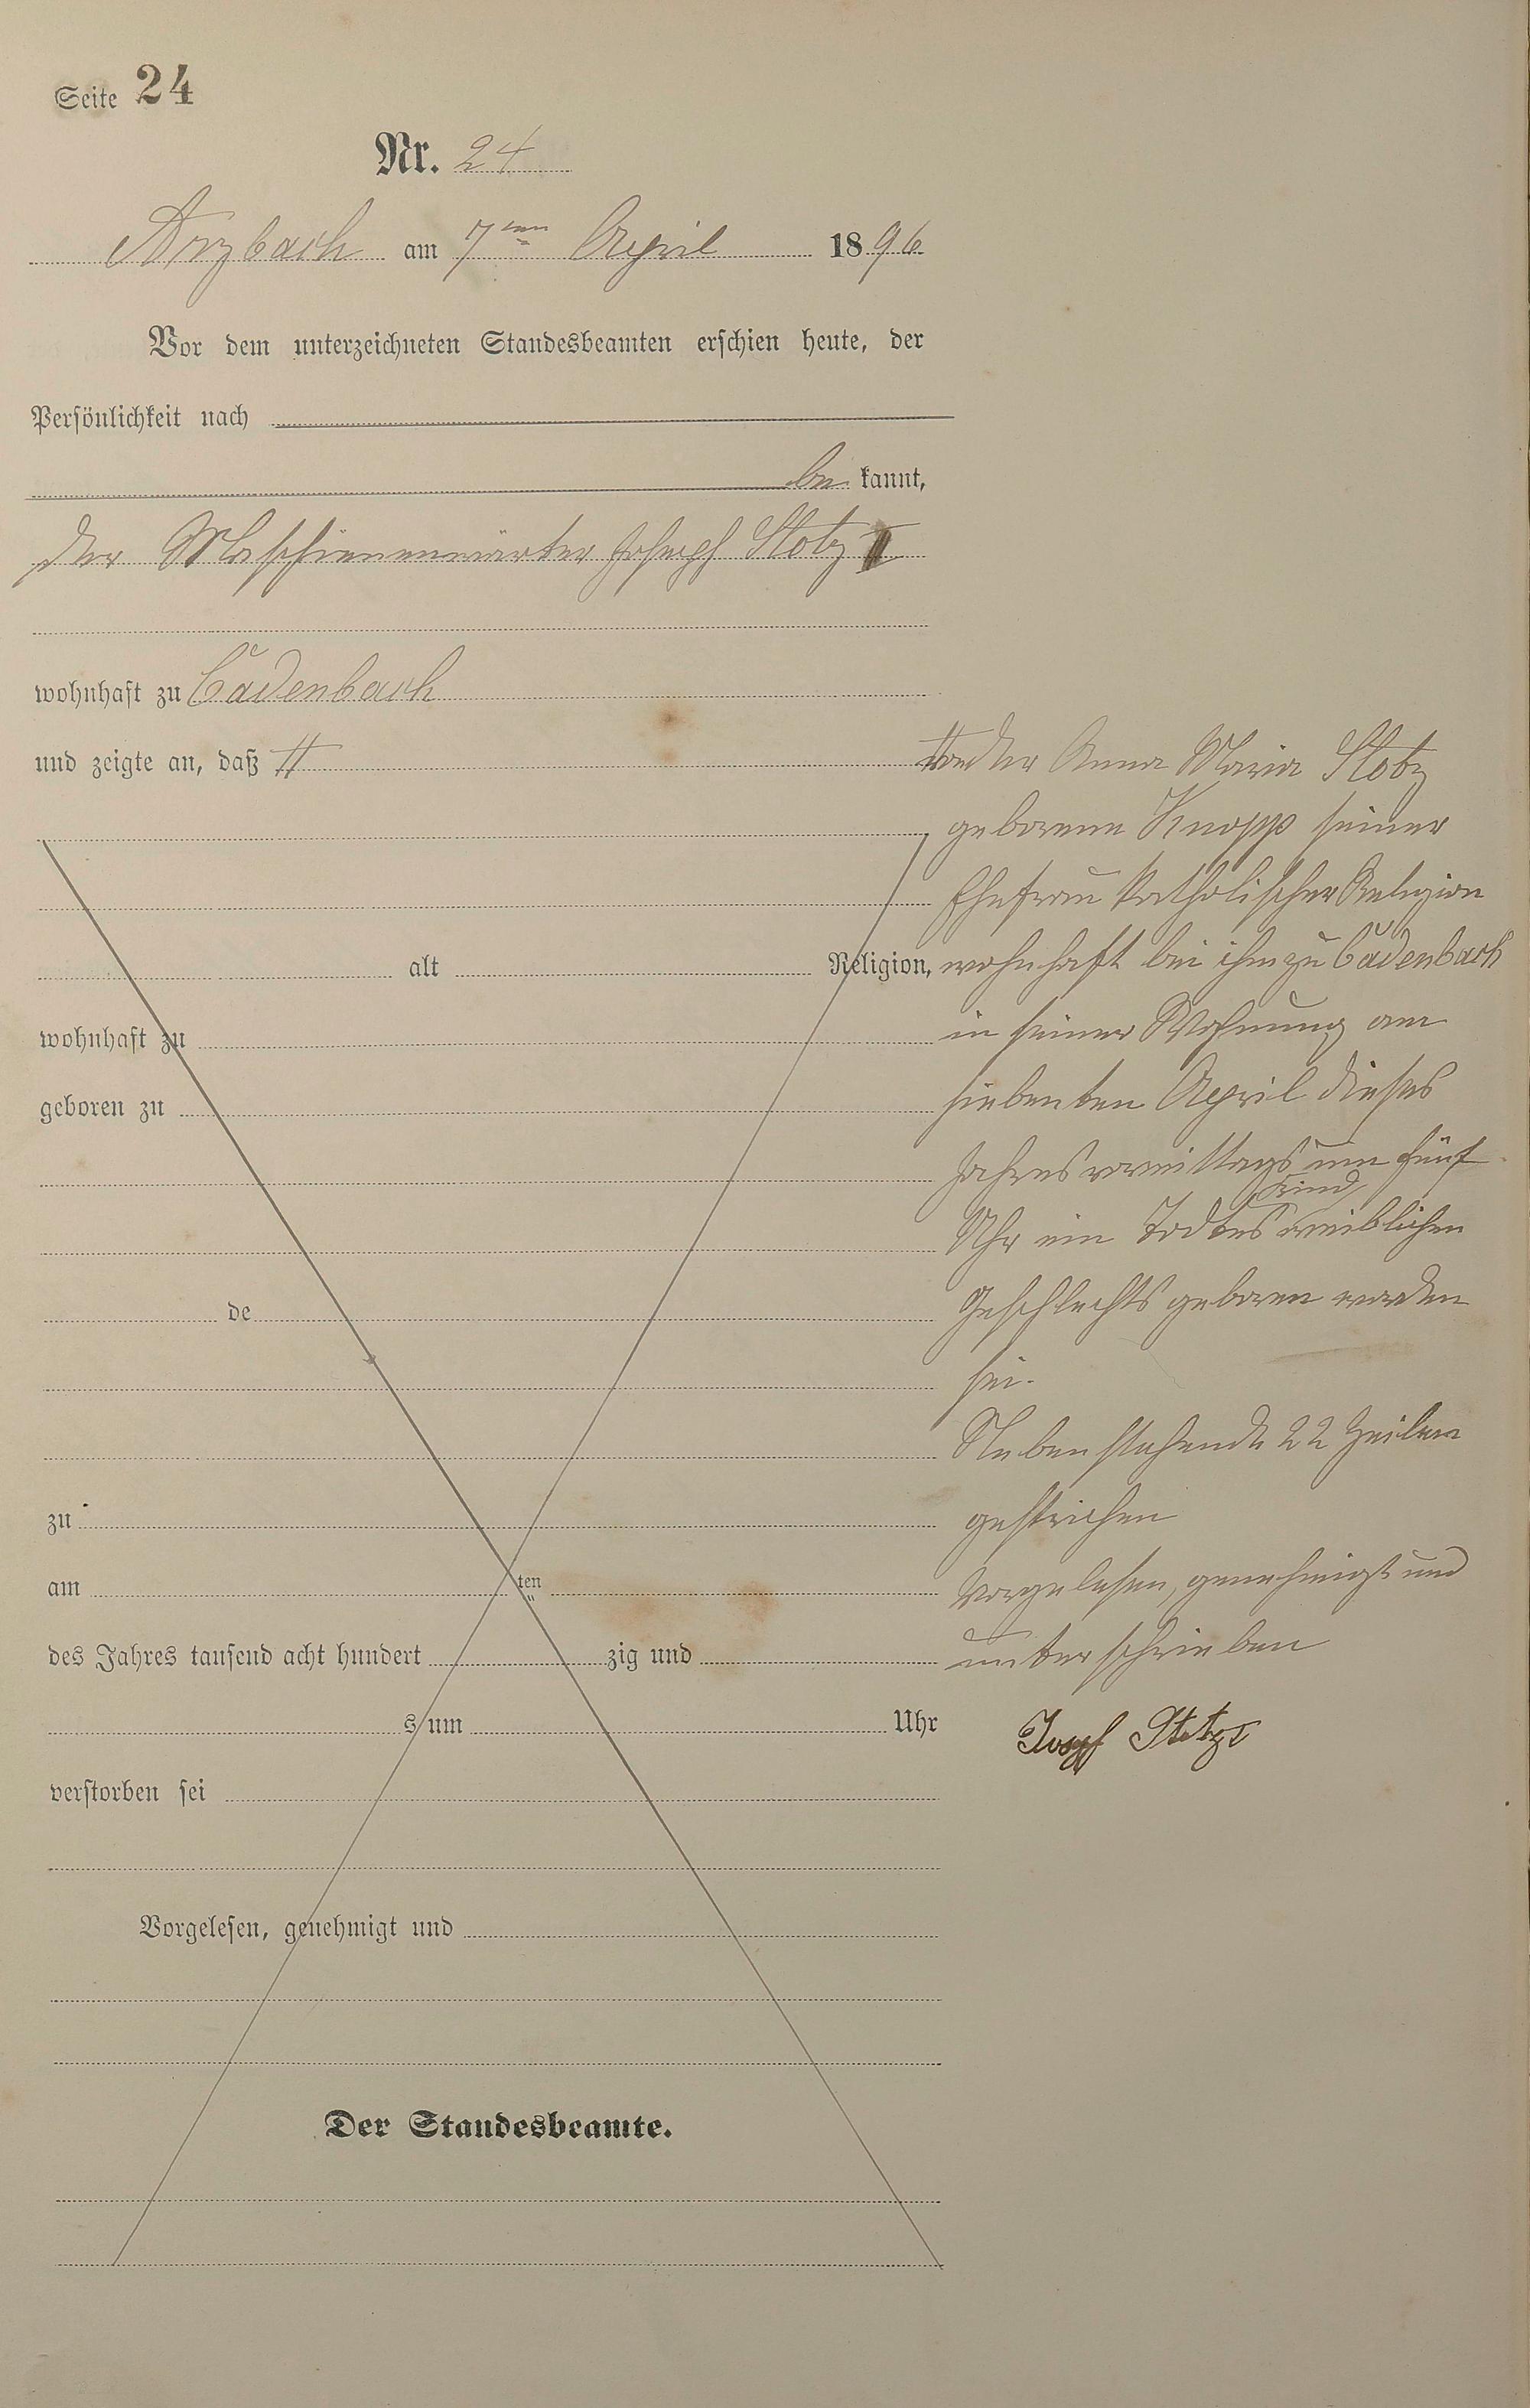 Seite 24
Nr. 24
Arzbach am 7ten April 1896
Vor dem unterzeichneten Standesbeamten erschien heute, der
Persönlichkeit nach
be kannt,
der Maschienenwärter Joseph Stotz II
wohnhaft zu Cadenbach
und zeigte an, daß #
alt Religion,
wohnhaft zu
geboren zu
de
zu
am ten
des Jahres tausend acht hundert zig und
s um Uhr
verstorben sei
Vorgelesen, genehmigt und
Der Standesbeamte.
# von der Anna Maria Stotz
geborene Knopp seiner
Ehefrau katholischer Religion
wohnhaft bei ihm zu Cadenbach
in seiner Wohnung am
siebenten April dieses
Jahres vormittags um fünf
Uhr ein Todtes Kind weiblichen
Geschlechts geboren worden
sei.
Nebenstehende 22 Zeilen
gestrichen
Vorgelesen, genehmigt und
unterschrieben
Josepf